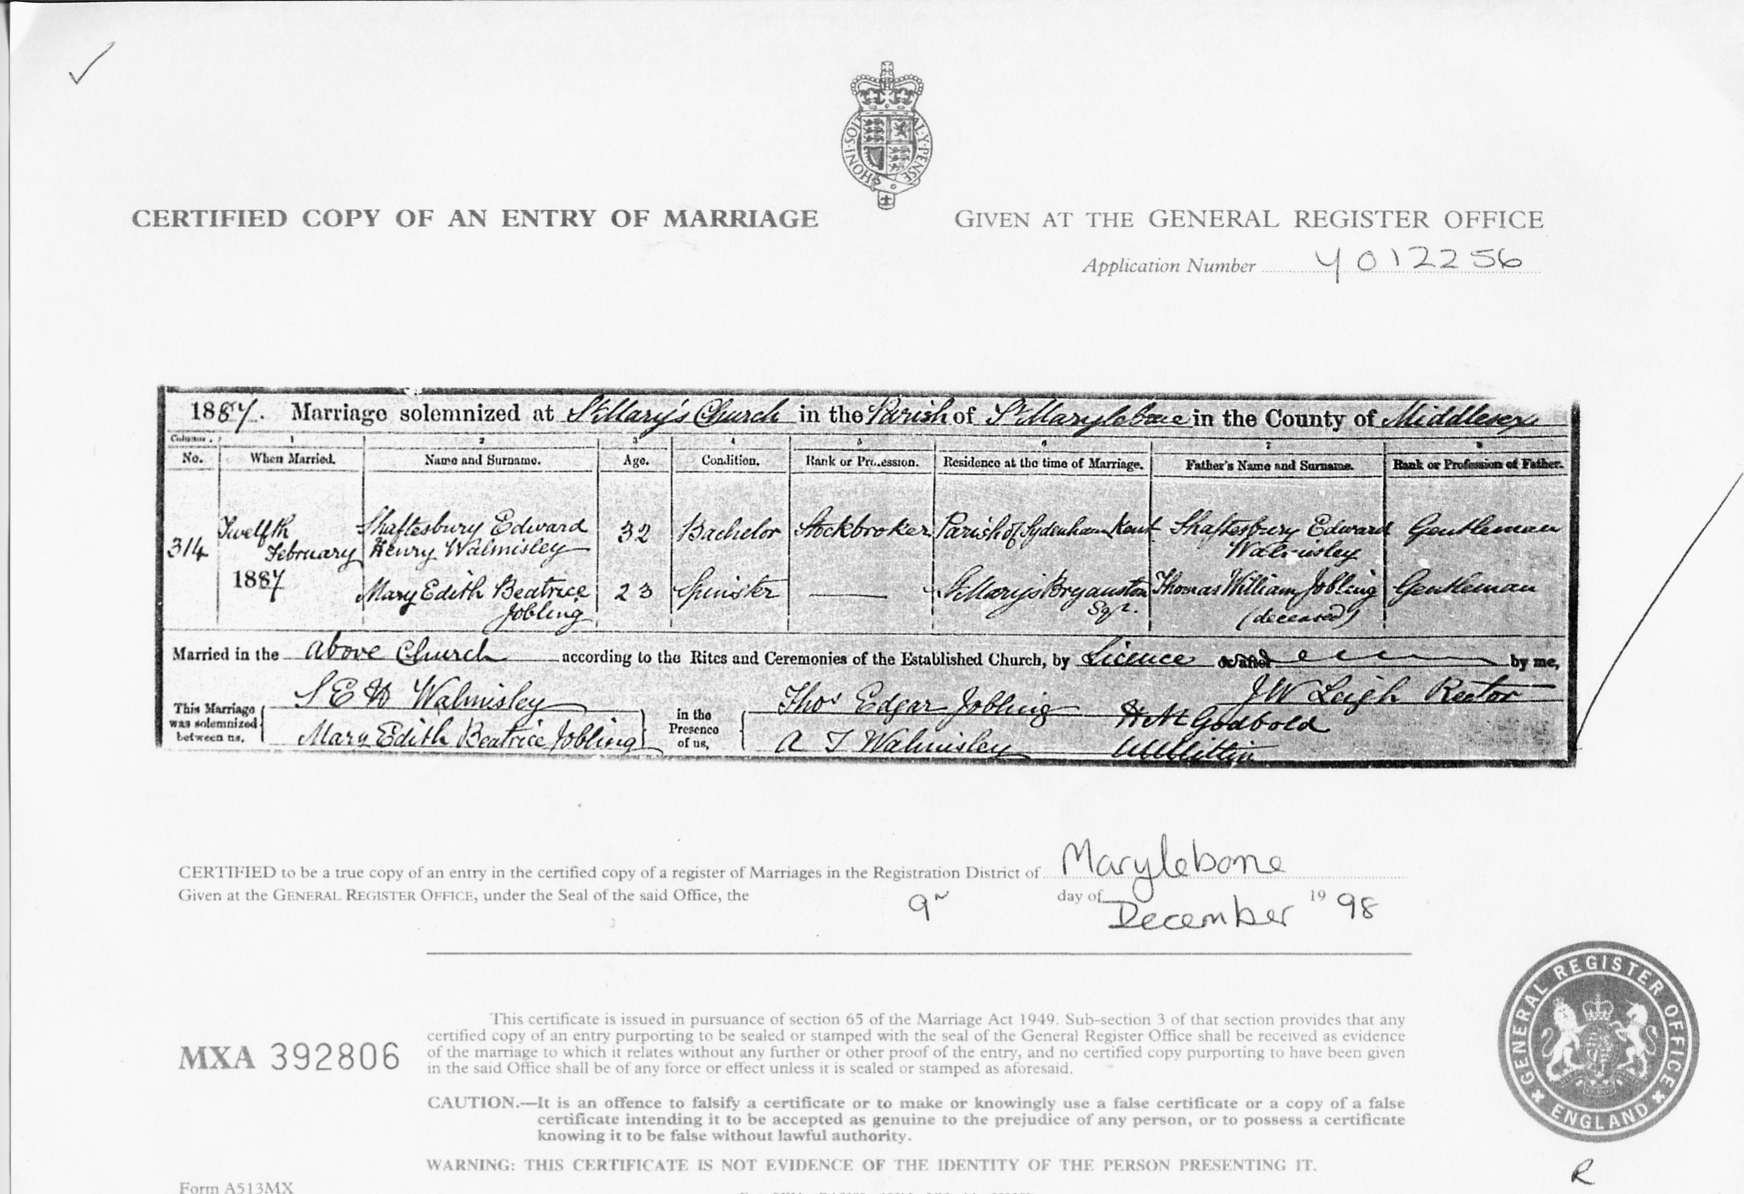 HONI·SOIT
Y·PENSE
CERTIFIED COPY OF AN ENTRY OF MARRIAGE
GIVEN AT THE GENERAL REGISTER OFFICE
Application Number Y012256
1887. Marriage solemnized at St Mary's Church in the Parish of St Marylebone in the County of Middlesex
Columns. 1 2 3 4 5 6 7 8
No. When Married. Name and Surname. Age. Condition. Rank or Profession. Residence at the time of Marriage. Father's Name and Surname. Rank or Profession of Father.
314 Twelfth February 1887
Shaftesbury Edward Henry Walmisley 32 Bachelor Stockbroker Parish of Sydenham Kent Shaftesbury Edward Walmisley Gentleman
Mary Edith Beatrice Jobling 23 Spinster — St Mary's Bryanston Sqr. Thomas William Jobling (deceased) Gentleman
Married in the above Church according to the Rites and Ceremonies of the Established Church, by Licence or after by me,
J W Leigh Rector
This Marriage was solemnized between us,
S E H Walmisley
Mary Edith Beatrice Jobling
in the Presence of us,
Thos Edgar Jobling
A T Walmisley
H M Godbold
CERTIFIED to be a true copy of an entry in the certified copy of a register of Marriages in the Registration District of Marylebone
Given at the GENERAL REGISTER OFFICE, under the Seal of the said Office, the 9th day of December 1998
MXA 392806
This certificate is issued in pursuance of section 65 of the Marriage Act 1949. Sub-section 3 of that section provides that any
certified copy of an entry purporting to be sealed or stamped with the seal of the General Register Office shall be received as evidence
of the marriage to which it relates without any further or other proof of the entry, and no certified copy purporting to have been given
in the said Office shall be of any force or effect unless it is sealed or stamped as aforesaid.
CAUTION.—It is an offence to falsify a certificate or to make or knowingly use a false certificate or a copy of a false
certificate intending it to be accepted as genuine to the prejudice of any person, or to possess a certificate
knowing it to be false without lawful authority.
WARNING: THIS CERTIFICATE IS NOT EVIDENCE OF THE IDENTITY OF THE PERSON PRESENTING IT.
GENERAL REGISTER OFFICE
ENGLAND
R
Form A513MX